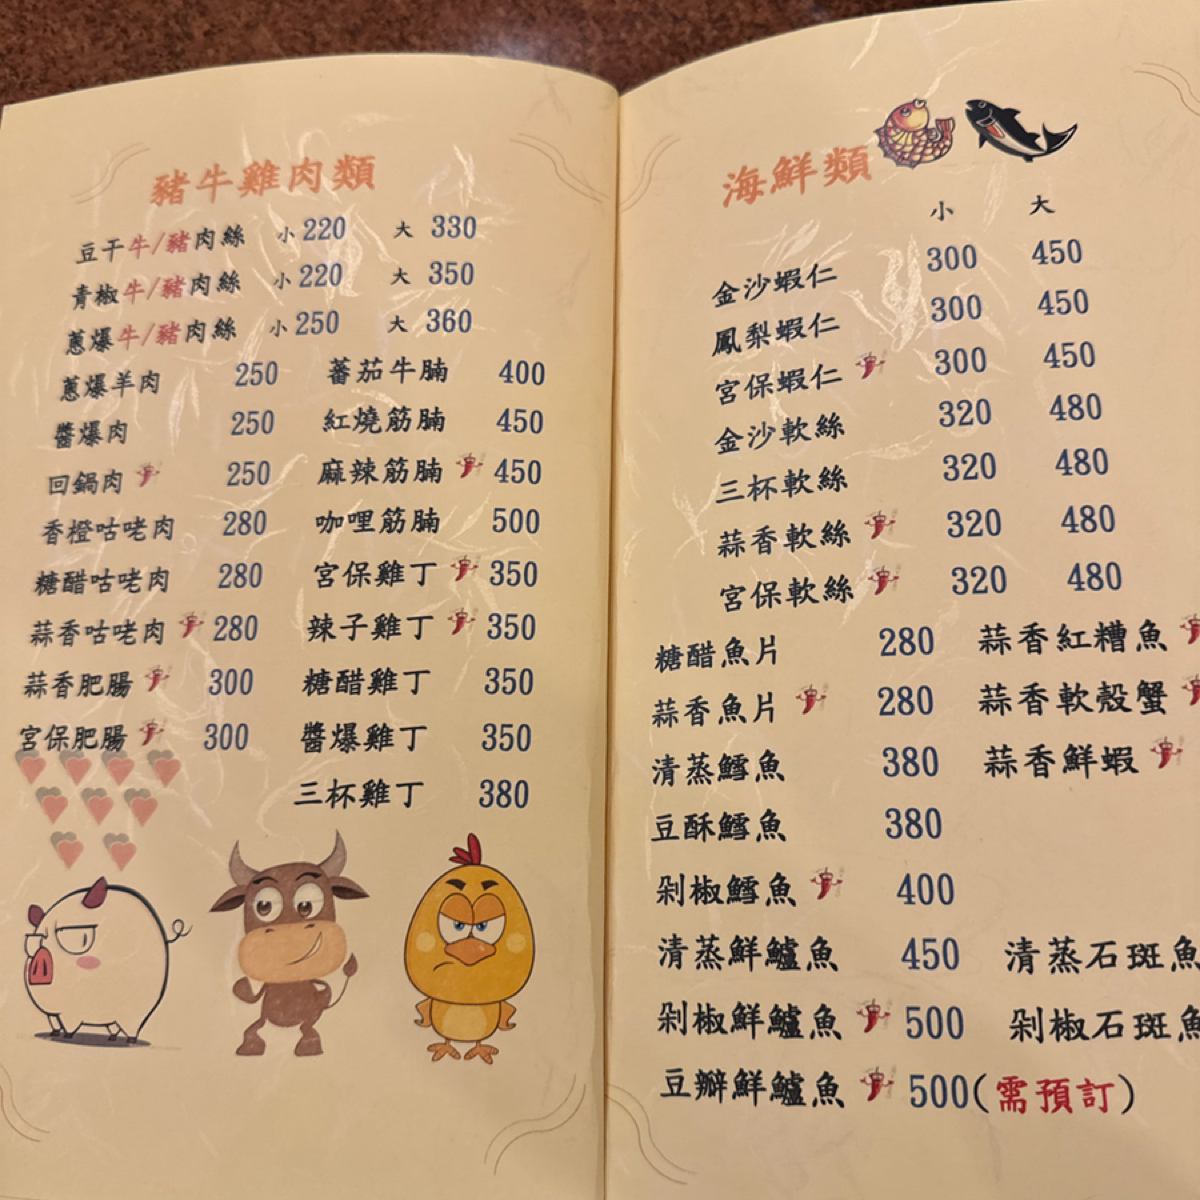 豬牛雞肉類
豆干牛/豬肉絲 小220 大 330
青椒牛/豬肉絲 小220 大 350
蔥爆牛/豬肉絲 小250 大 360
蔥爆羊肉 250 蕃茄牛腩 400
醬爆肉 250 紅燒筋腩 450
回鍋肉 250 麻辣筋腩 450
香橙咕咾肉 280 咖哩筋腩 500
糖醋咕咾肉 280 宮保雞丁 350
蒜香咕咾肉 280 辣子雞丁 350
蒜香肥腸 300 糖醋雞丁 350
宮保肥腸 300 醬爆雞丁 350
三杯雞丁 380
海鮮類
小 大
金沙蝦仁 300 450
鳳梨蝦仁 300 450
宮保蝦仁 300 450
金沙軟絲 320 480
三杯軟絲 320 480
蒜香軟絲 320 480
宮保軟絲 320 480
糖醋魚片 280 蒜香紅糟魚
蒜香魚片 280 蒜香軟殼蟹
清蒸鱈魚 380 蒜香鮮蝦
豆酥鱈魚 380
剁椒鱈魚 400
清蒸鮮鱸魚 450 清蒸石斑魚
剁椒鮮鱸魚 500 剁椒石斑魚
豆瓣鮮鱸魚 500(需預訂)